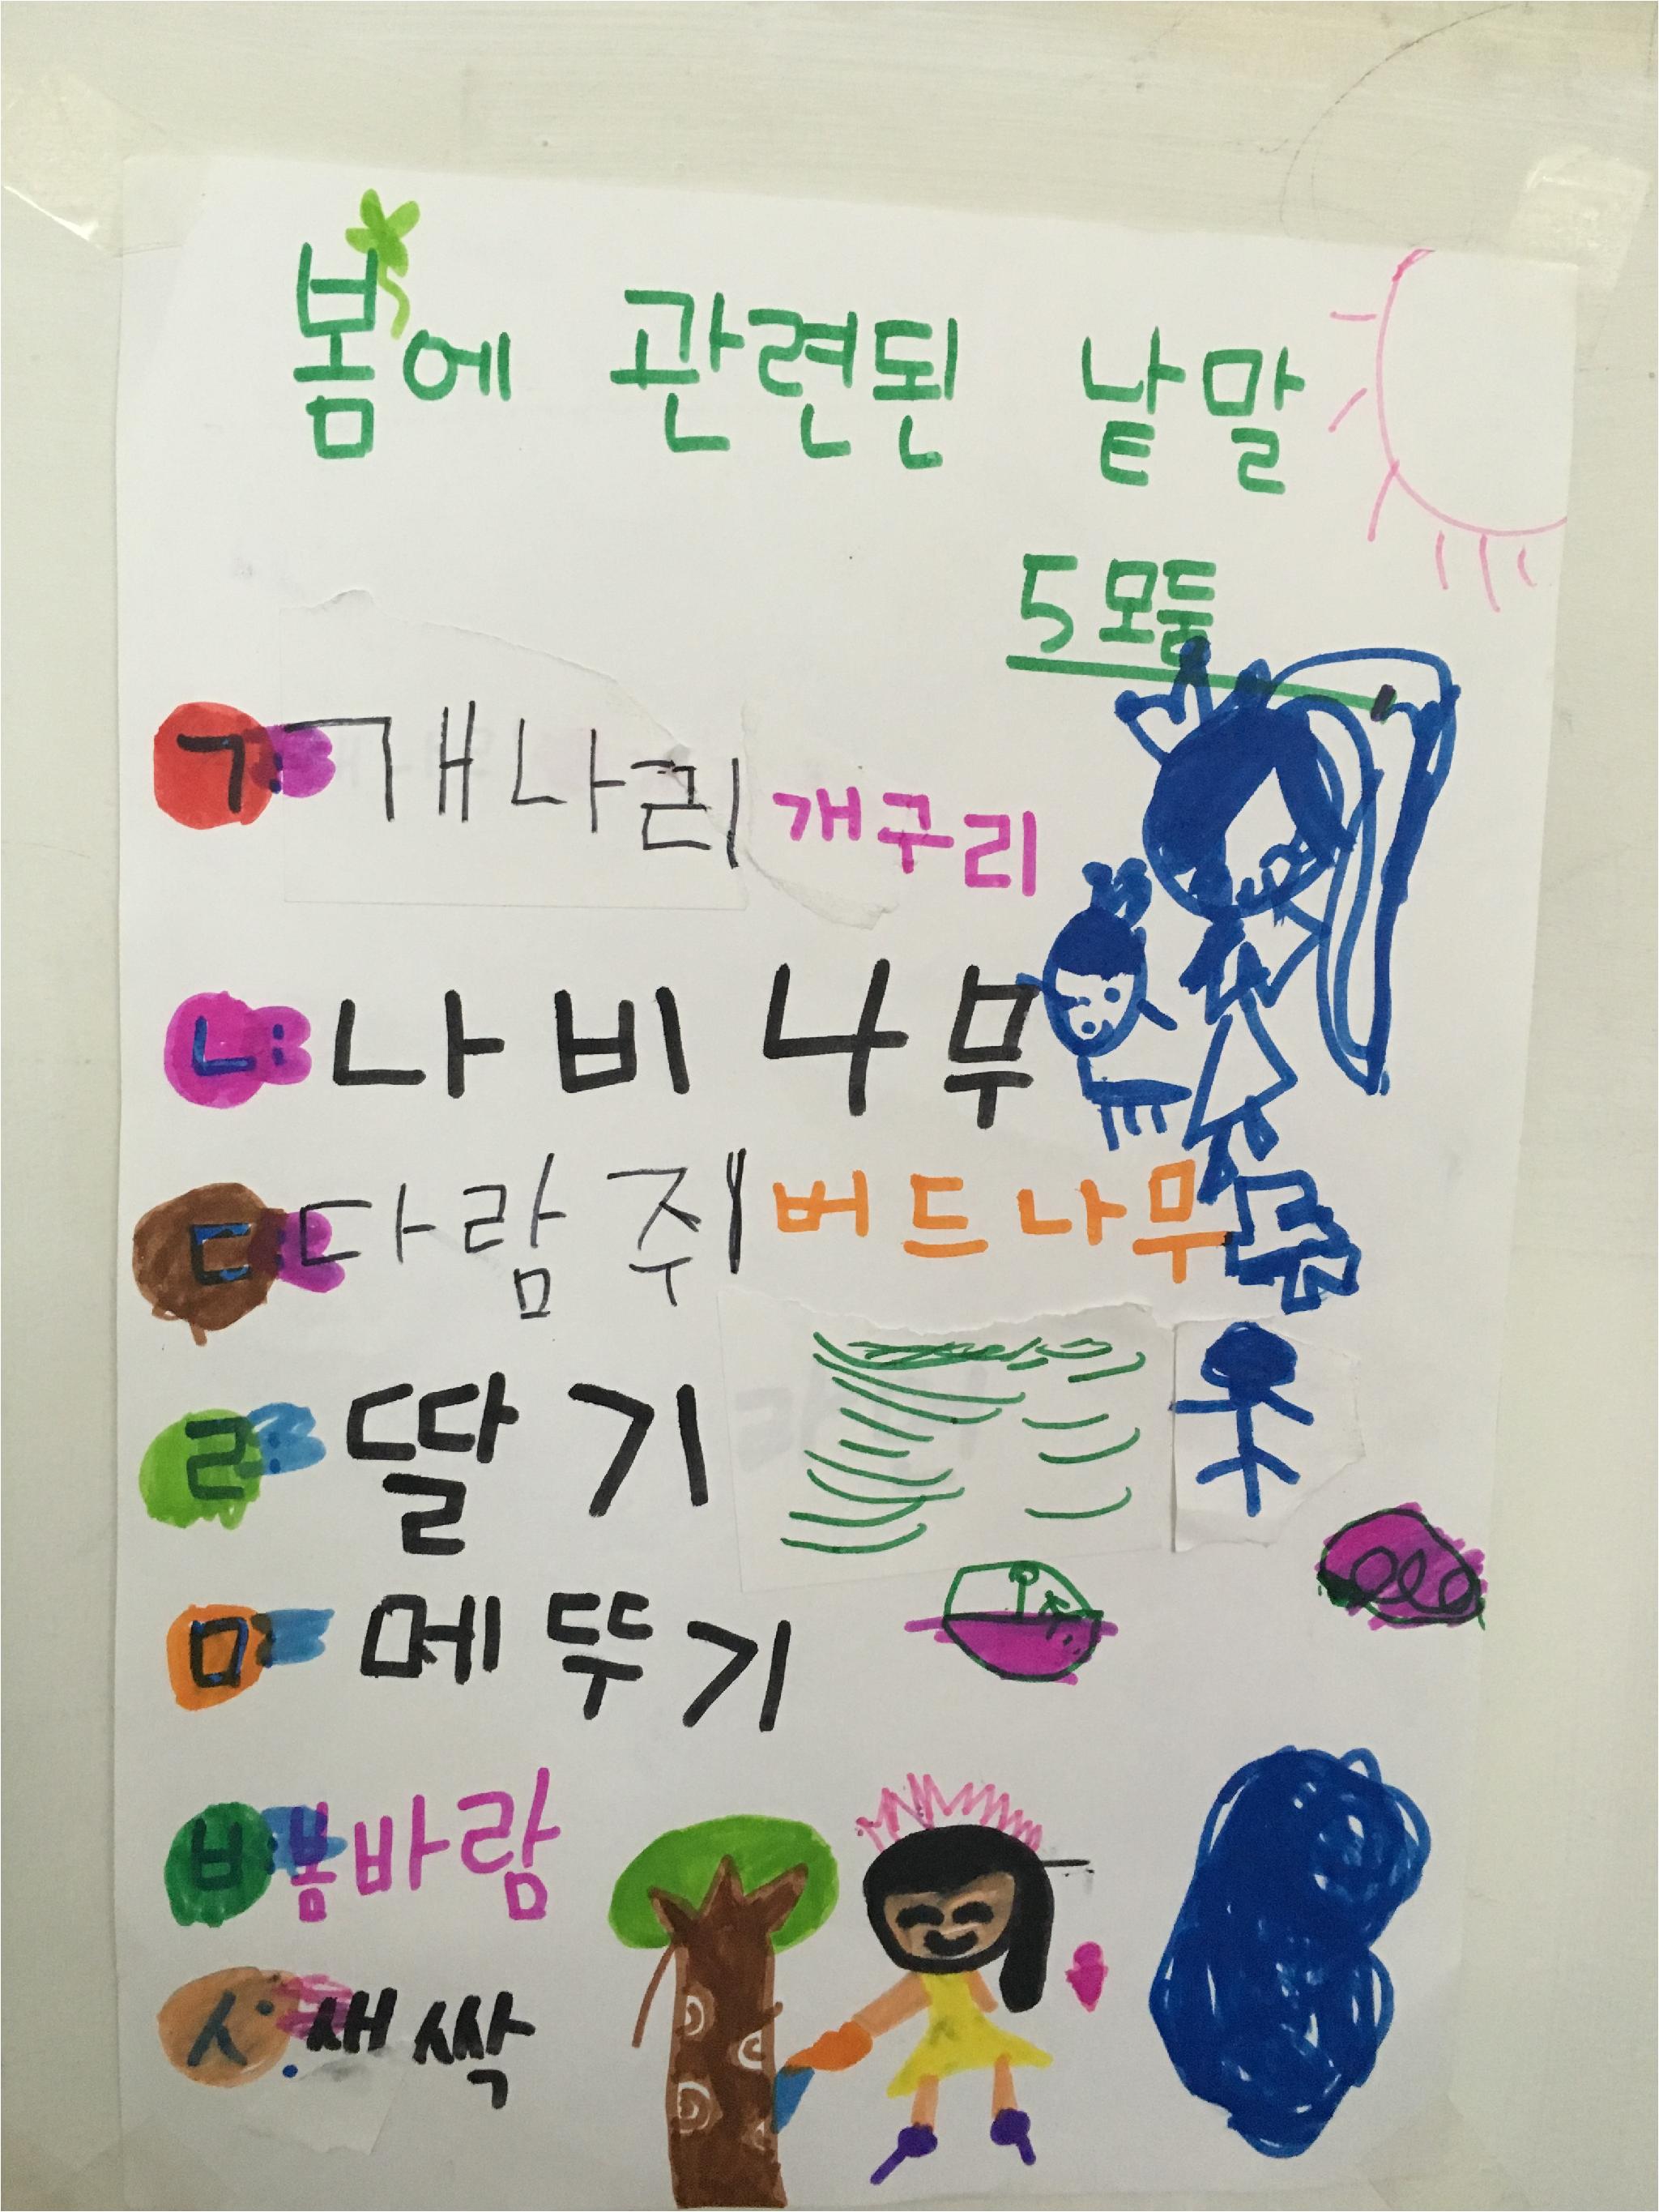 봄에 관련된 낱말
5모둠
ㄱ: 개나리 개구리
ㄴ: 나비 나무
ㄷ: 다람쥐 버드나무
ㄹ: 딸기
ㅁ: 메뚜기
ㅂ: 봄바람
ㅅ: 새싹